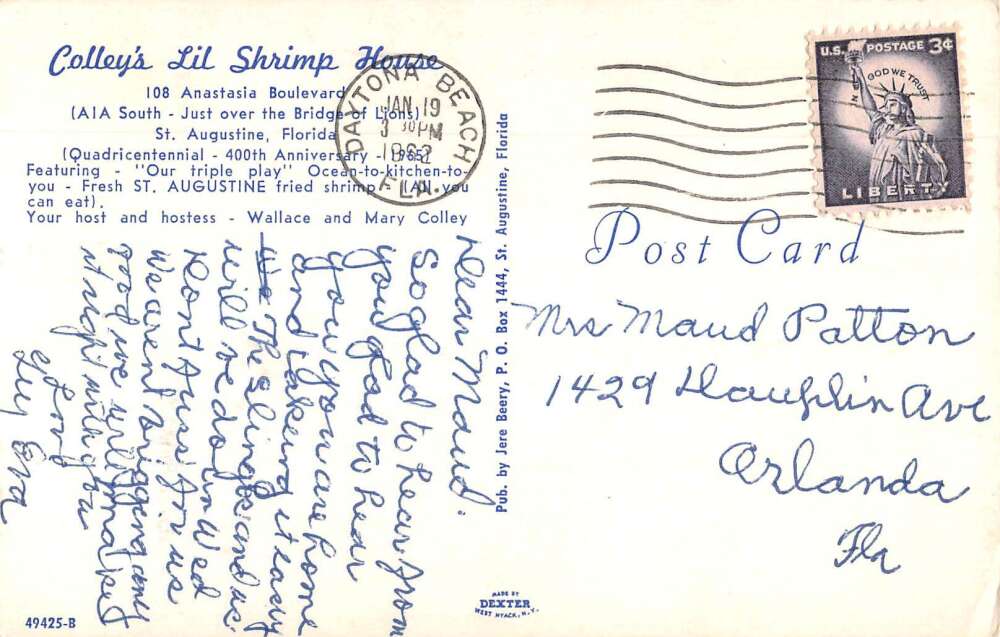 Colley's Lil Shrimp House
108 Anastasia Boulevard
(A1A South - Just over the Bridge of Lions)
St. Augustine, Florida
(Quadricentennial - 400th Anniversary - 1965)
Featuring - "Our triple play" Ocean-to-kitchen-to-
you - Fresh ST. AUGUSTINE fried shrimp (All you
can eat).
Your host and hostess - Wallace and Mary Colley
DAYTONA BEACH
JAN 19
3 30 PM
1962
FLA.
U.S. POSTAGE 3¢
IN GOD WE TRUST
LIBERTY
Post Card
Dear Maud:
So glad to hear from
you glad to hear
you are home
and taking it easy
The and us
will be down Wed
Dont fuss for us
We arent
good we will
with you
Love
Eva
Pub. by Jere Beery, P. O. Box 1444, St. Augustine, Florida
Mrs Maud Patton
1429 Dauphin Ave
Orlanda
Fla
49425-B
MADE BY
DEXTER
WEST NYACK, N.Y.